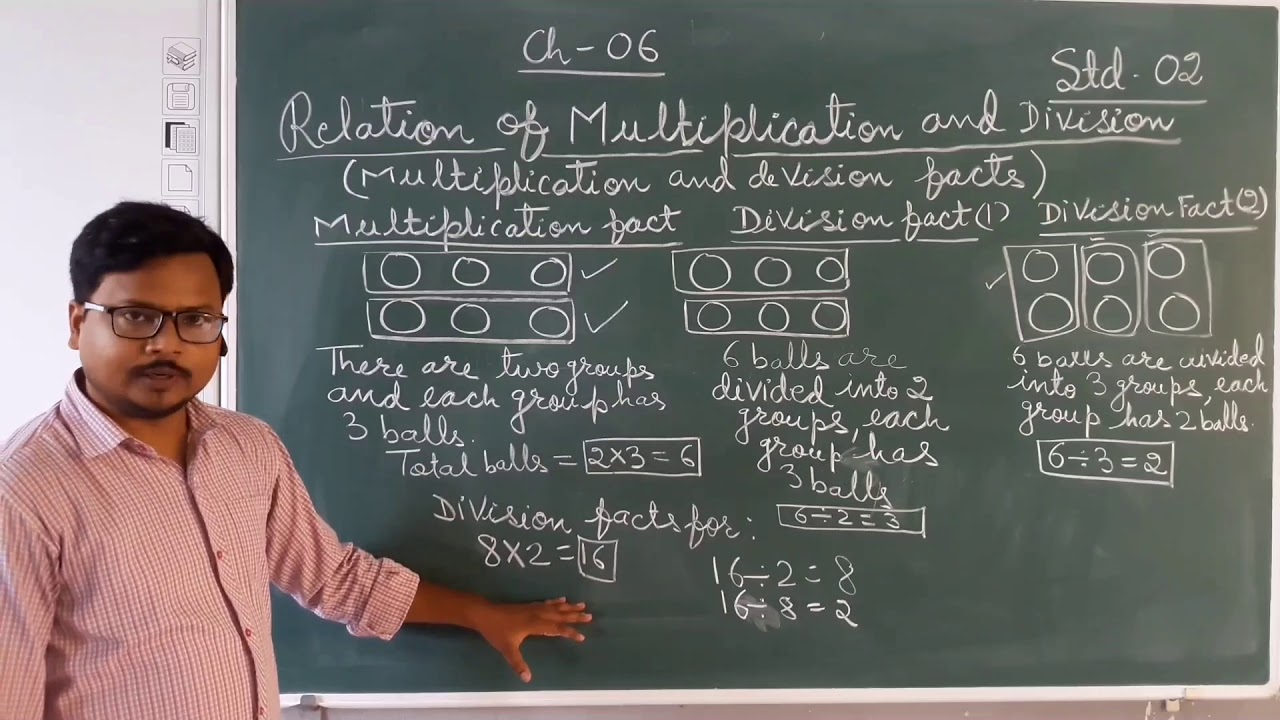 Ch - 06
Std. 02
Relation of Multiplication and Division
(Multiplication and devision facts)
Multiplication fact
There are two groups
and each group has
3 balls.
Total balls = 2×3 = 6
Division fact (1)
6 balls are
divided into 2
groups, each
group has
3 balls
6÷2=3
Division Fact(2)
6 balls are divided
into 3 groups, each
group has 2 balls.
6÷3=2
Division facts for:
8×2=16
16÷2=8
16÷8=2